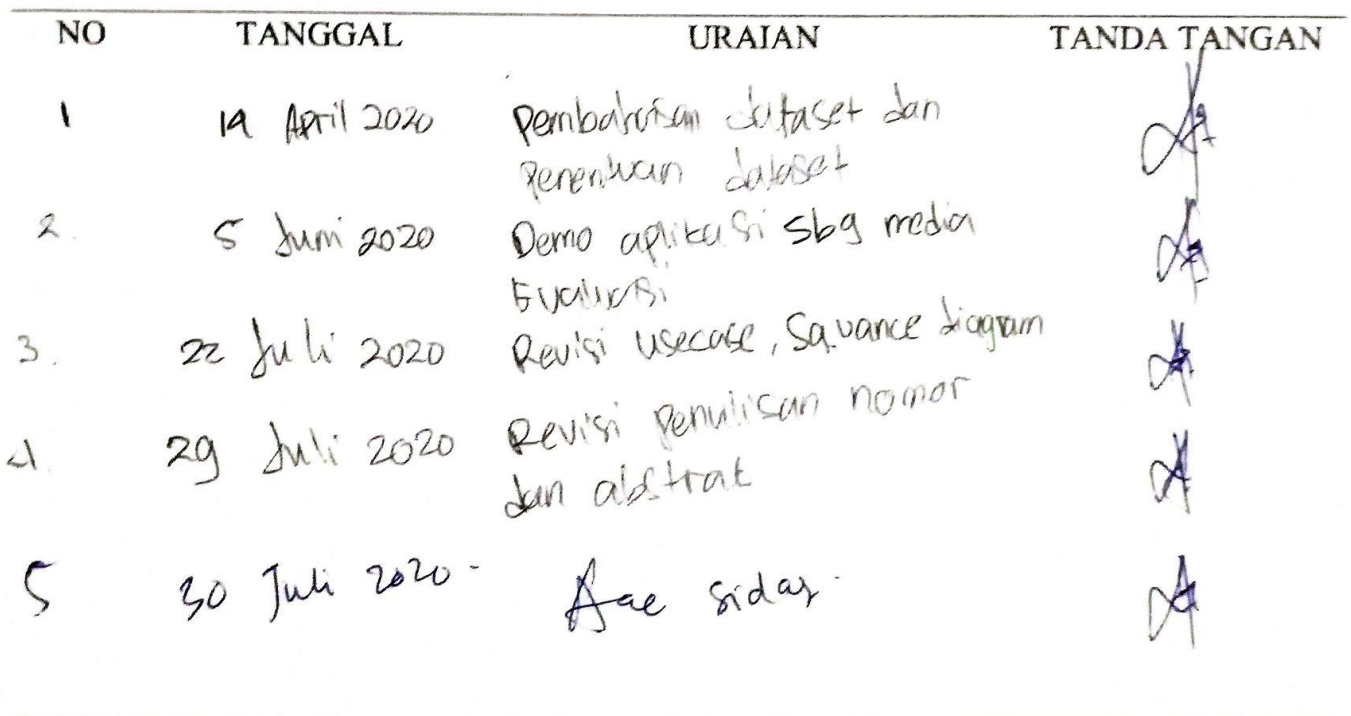 NO TANGGAL URAIAN TANDA TANGAN
1 14 April 2020 Pembahasan dataset dan
Penentuan dataset
2. 5 Juni 2020 Demo aplikasi sbg media
Evaluasi
3. 22 Juli 2020 Revisi usecase, Squance diagram
4. 29 Juli 2020 Revisi Penulisan nomor
dan abstrak
5 30 Juli 2020 - Acc sidang.